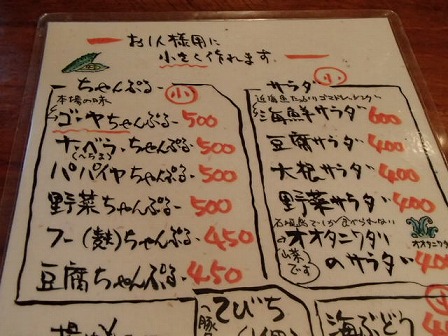 お1人様用に
小さく作れます
ちゃんぷるー 小
本場の味
ゴーヤちゃんぷるー 500
ナーベラーちゃんぷるー 500
(へちま)
パパイヤちゃんぷるー 500
野菜ちゃんぷるー 500
フー(麩)ちゃんぷるー 450
豆腐ちゃんぷるー 450
サラダ 小
海鮮サラダ 600
豆腐サラダ 400
大根サラダ 400
野菜サラダ 400
石垣島でしか食べられない
オオタニワタリ
のサラダ 40
山菜です
オオタニワタリ
てびち
海ぶどう